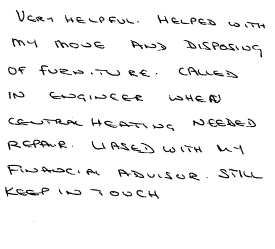 VERY HELPFUL. HELPED WITH
MY MOVE AND DISPOSING
OF FURNITURE. CALLED
IN ENGINEER WHEN
CENTRAL HEATING NEEDED
REPAIR. LIASED WITH MY
FINANCIAL ADVISOR. STILL
KEEP IN TOUCH